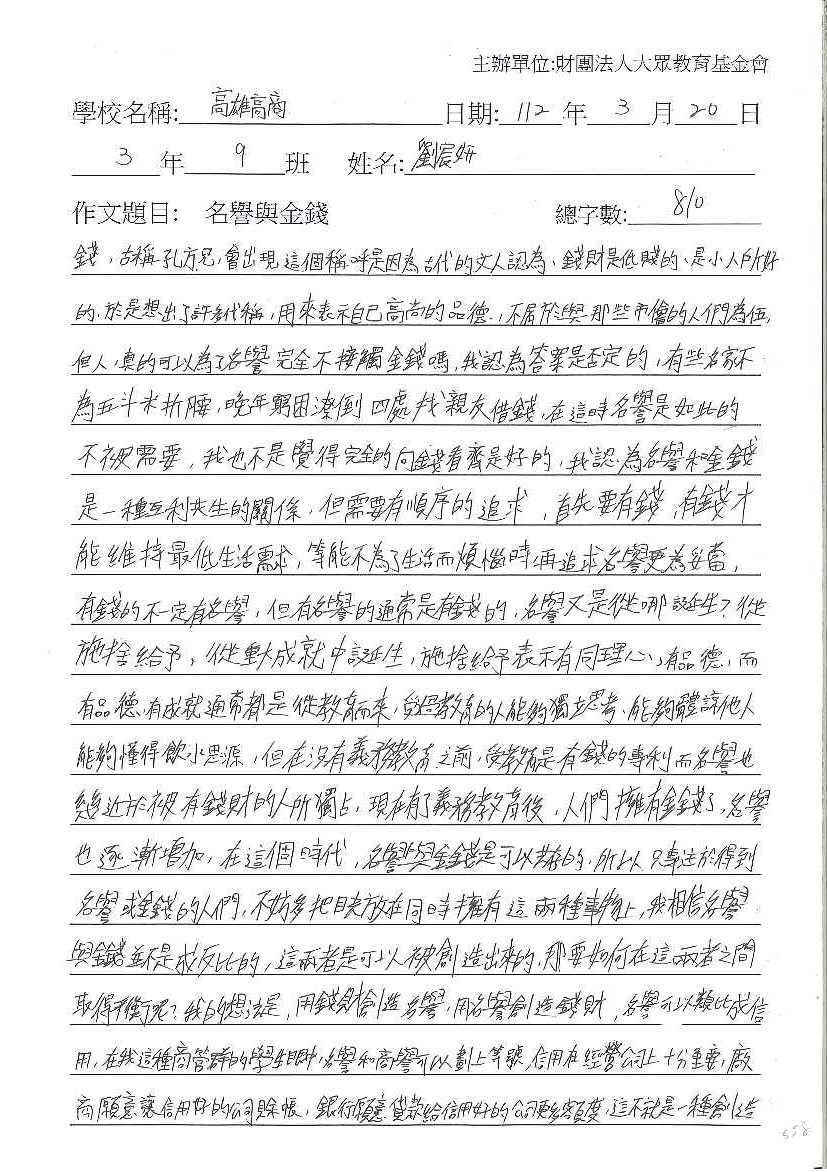 主辦單位:財團法人大眾教育基金會
學校名稱: 高雄高商 日期: 112 年 3 月 20 日
3 年 9 班 姓名: 劉宸妍
作文題目: 名譽與金錢 總字數: 810
錢，古稱孔方兄，會出現這個稱呼是因為古代的文人認為、錢財是低賤的、是小人所好
的，於是想出了許多代稱，用來表示自己高尚的品德，不屬於與那些市儈的人們為伍，
但人，真的可以為了名譽完全不接觸金錢嗎，我認為答案是否定的，有些名家不
為五斗米折腰，晚年窮困潦倒四處找親友借錢，在這時名譽是如此的
不被需要，我也不是覺得完全的向錢看齊是好的，我認為名譽和金錢
是一種互利共生的關係，但需要有順序的追求，首先要有錢，有錢才
能維持最低生活需求，等能不為了生活而煩惱時再追求名譽更為妥當，
有錢的不一定有名譽，但有名譽的通常是有錢的，名譽又是從哪誕生？從
施捨給予，從重大成就中誕生，施捨給予表示有同理心，有品德，而
有品德、有成就通常都是從教育而來，受過教育的人能夠獨立思考、能夠體諒他人
能夠懂得飲水思源，但在沒有義務教育之前，受教育是有錢的專利而名譽也
幾近於被有錢財的人所獨占，現在有了義務教育後，人們擁有金錢了，名譽
也逐漸增加，在這個時代，名譽與金錢是可以共存的，所以只專注於得到
名譽或金錢的人們，不妨多把目光放在同時擁有這兩種事物上，我相信名譽
與金錢並不是成反比的，這兩者是可以被創造出來的，那要如何在這兩者之間
取得平衡呢？我的想法是，用錢財創造名譽，用名譽創造錢財，名譽可以類比成信
用，在我這種商管群的學生眼中，名譽和商譽可以劃上等號，信用在經營公司上十分重要，廠
商願意讓信用好的公司賒帳，銀行願意貸款給信用好的公司更多額度，這不就是一種創造